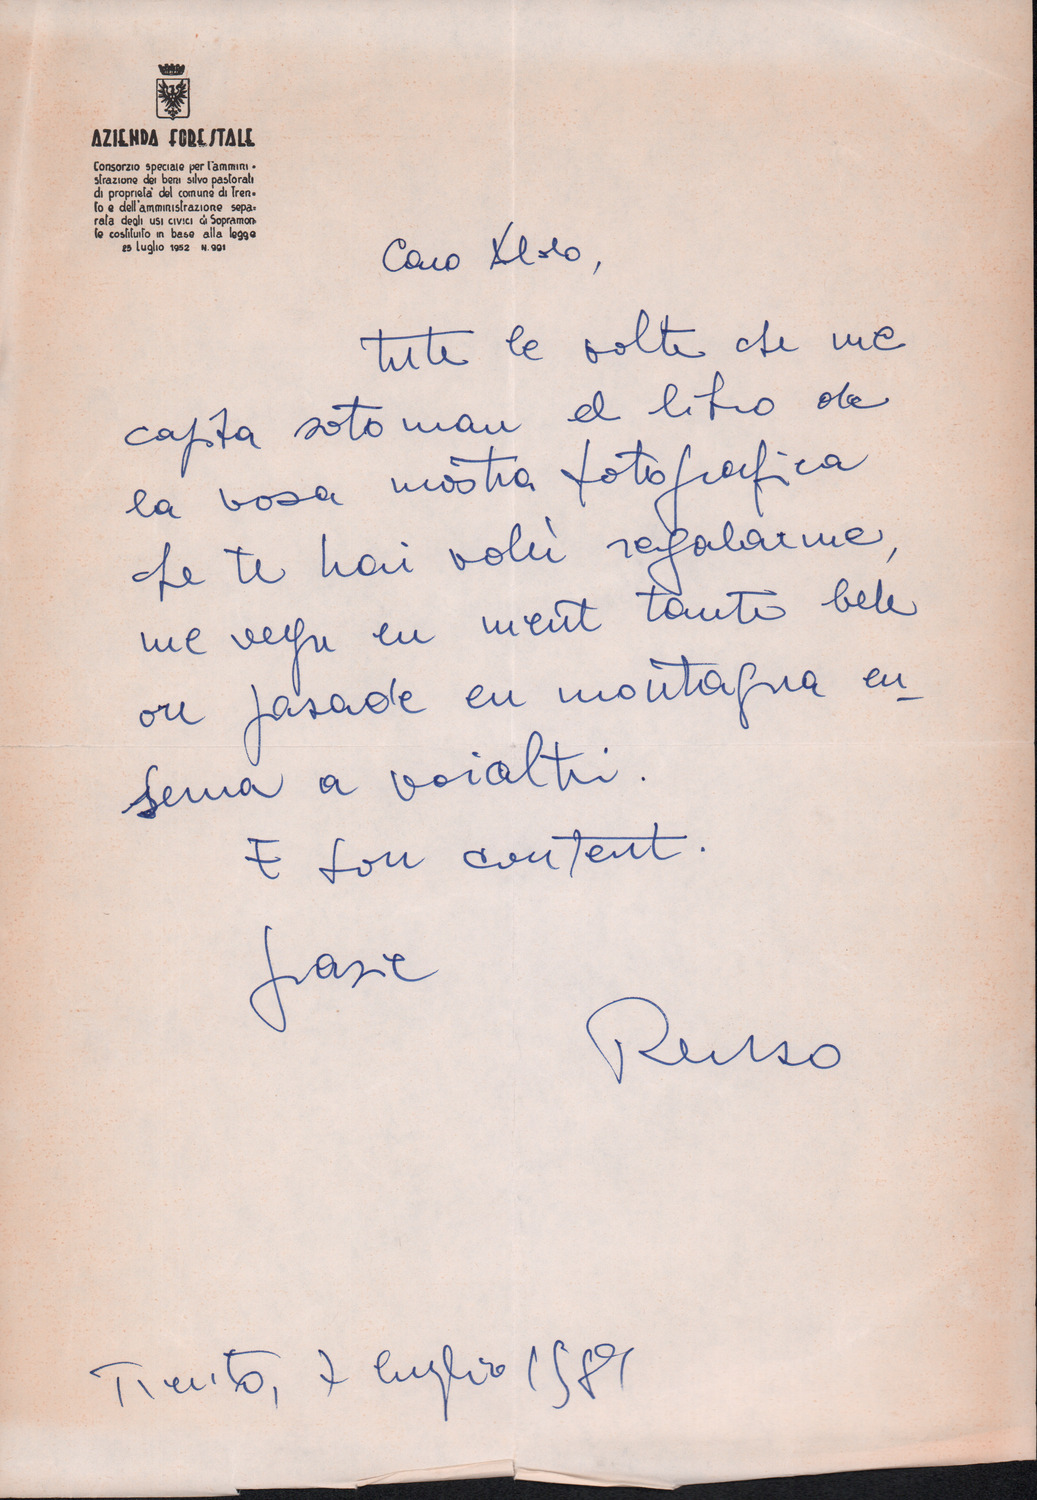 AZIENDA FORESTALE
Consorzio speciale per l'ammini-
strazione dei beni silvo pastorali
di proprietà del comune di Tren-
to e dell'amministrazione sepa-
rata degli usi civici di Sopramon-
te costituito in base alla legge
25 luglio 1952 N. 991
Caro Aldo,
tute le volte che me
capita soto man el libro de
la vosa mostra fotografica
che te hai volù regalarme,
me vegn en ment tante bele
ore pasade en montagna en-
sema a voialtri.
E son content.
grazie
Renzo
Trento, 7 luglio 1989